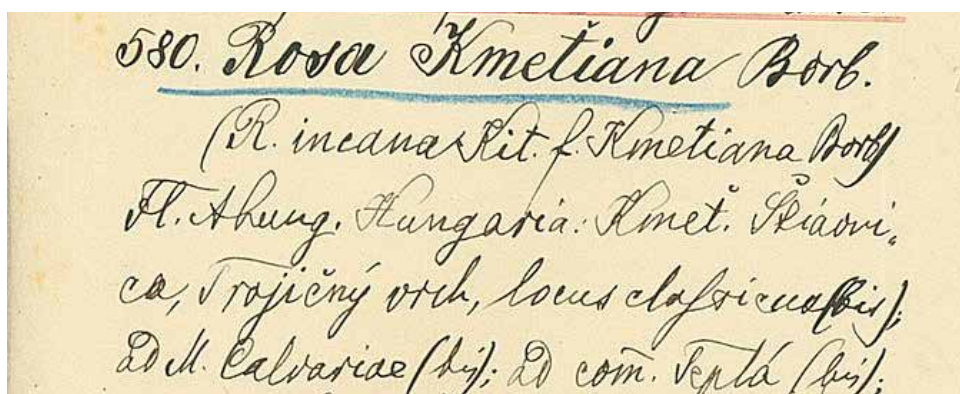 580. Rosa Kmeťiana Borb.
(R. incana Kit. f. Kmetiana Borb)
Fl. Ahung. Hungaria: Kmeť. Štiavni„
ca, Trojičný vrch, locus classicus (bis);
ad M. Calvariae (bis); ad com̄. Teplá (bis);